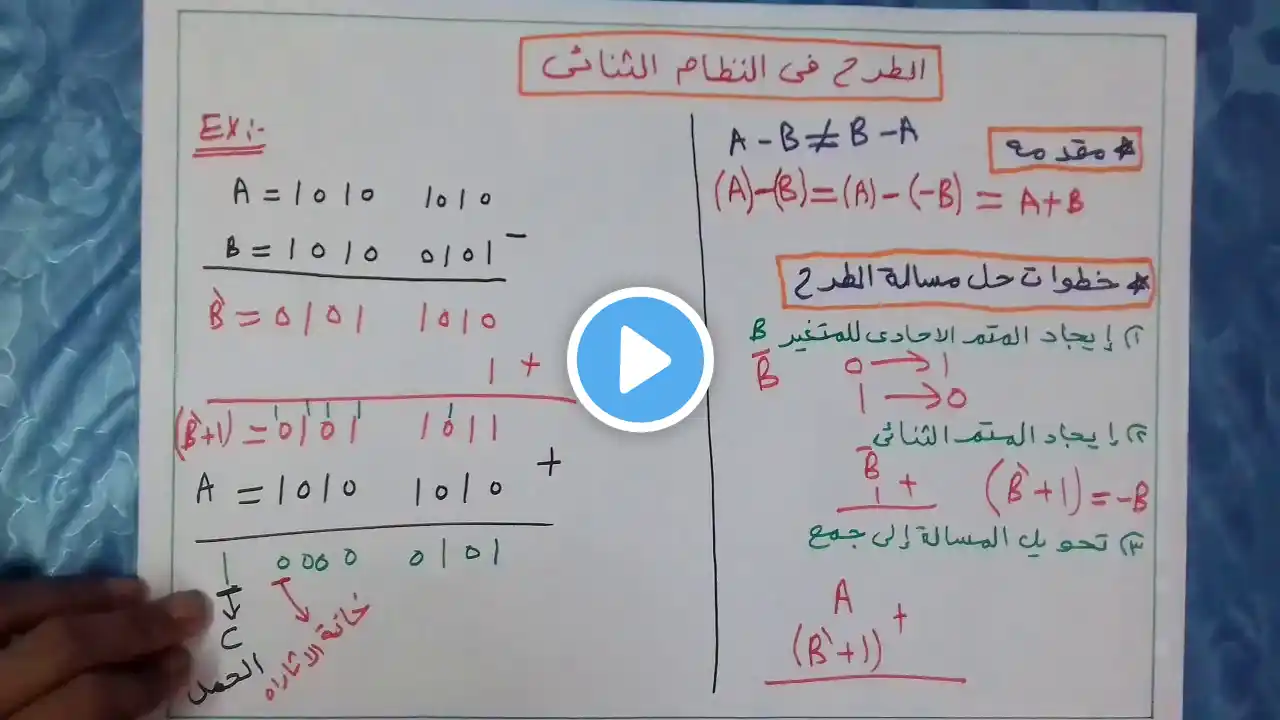 الطرح فى النظام الثنائى
* مقدمه
A - B ≠ B - A
(A)-(B)=(A)-(-B) = A+B
* خطوات حل مسالة الطرح
١) إيجاد المتمر الاحادى للمتغير B
B̅
0 → 1
1 → 0
٢) إيجاد المتمر الثنائى
B̅
1 +
(B̀+1) = -B
٣) تحويل المسالة إلى جمع
A
+
(B̀+1)
EX:-
A = 1010 1010
B = 1010 0101 -
B̀ = 0101 1010
1 +
1 1 1 1 1
(B̀+1) = 0101 1011
A = 1010 1010 +
1 0000 0101
C
الحمل
خانة الاشاره